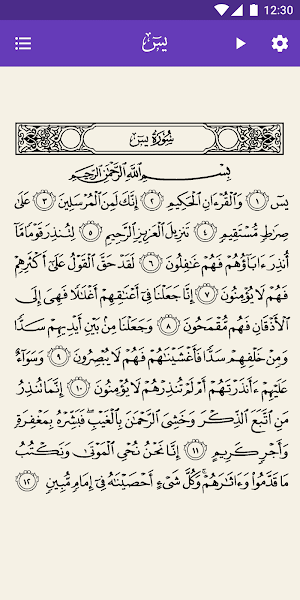 12:30
يسٓ
سُورَةُ يسٓ
بِسْمِ اللَّهِ الرَّحْمَٰنِ الرَّحِيمِ
يسٓ ١ وَالْقُرْءَانِ الْحَكِيمِ ٢ إِنَّكَ لَمِنَ الْمُرْسَلِينَ ٣ عَلَىٰ
صِرَٰطٍ مُّسْتَقِيمٍ ٤ تَنزِيلَ الْعَزِيزِ الرَّحِيمِ ٥ لِتُنذِرَ قَوْمًا مَّا
أُنذِرَ ءَابَآؤُهُمْ فَهُمْ غَٰفِلُونَ ٦ لَقَدْ حَقَّ الْقَوْلُ عَلَىٰٓ أَكْثَرِهِمْ
فَهُمْ لَا يُؤْمِنُونَ ٧ إِنَّا جَعَلْنَا فِىٓ أَعْنَٰقِهِمْ أَغْلَٰلًا فَهِىَ إِلَى
الْأَذْقَانِ فَهُم مُّقْمَحُونَ ٨ وَجَعَلْنَا مِنۢ بَيْنِ أَيْدِيهِمْ سَدًّا
وَمِنْ خَلْفِهِمْ سَدًّا فَأَغْشَيْنَٰهُمْ فَهُمْ لَا يُبْصِرُونَ ٩ وَسَوَآءٌ
عَلَيْهِمْ ءَأَنذَرْتَهُمْ أَمْ لَمْ تُنذِرْهُمْ لَا يُؤْمِنُونَ ١٠ إِنَّمَا تُنذِرُ
مَنِ اتَّبَعَ الذِّكْرَ وَخَشِىَ الرَّحْمَٰنَ بِالْغَيْبِ ۖ فَبَشِّرْهُ بِمَغْفِرَةٍ
وَأَجْرٍ كَرِيمٍ ١١ إِنَّا نَحْنُ نُحْىِ الْمَوْتَىٰ وَنَكْتُبُ
مَا قَدَّمُوا۟ وَءَاثَٰرَهُمْ ۚ وَكُلَّ شَىْءٍ أَحْصَيْنَٰهُ فِىٓ إِمَامٍ مُّبِينٍ ١٢